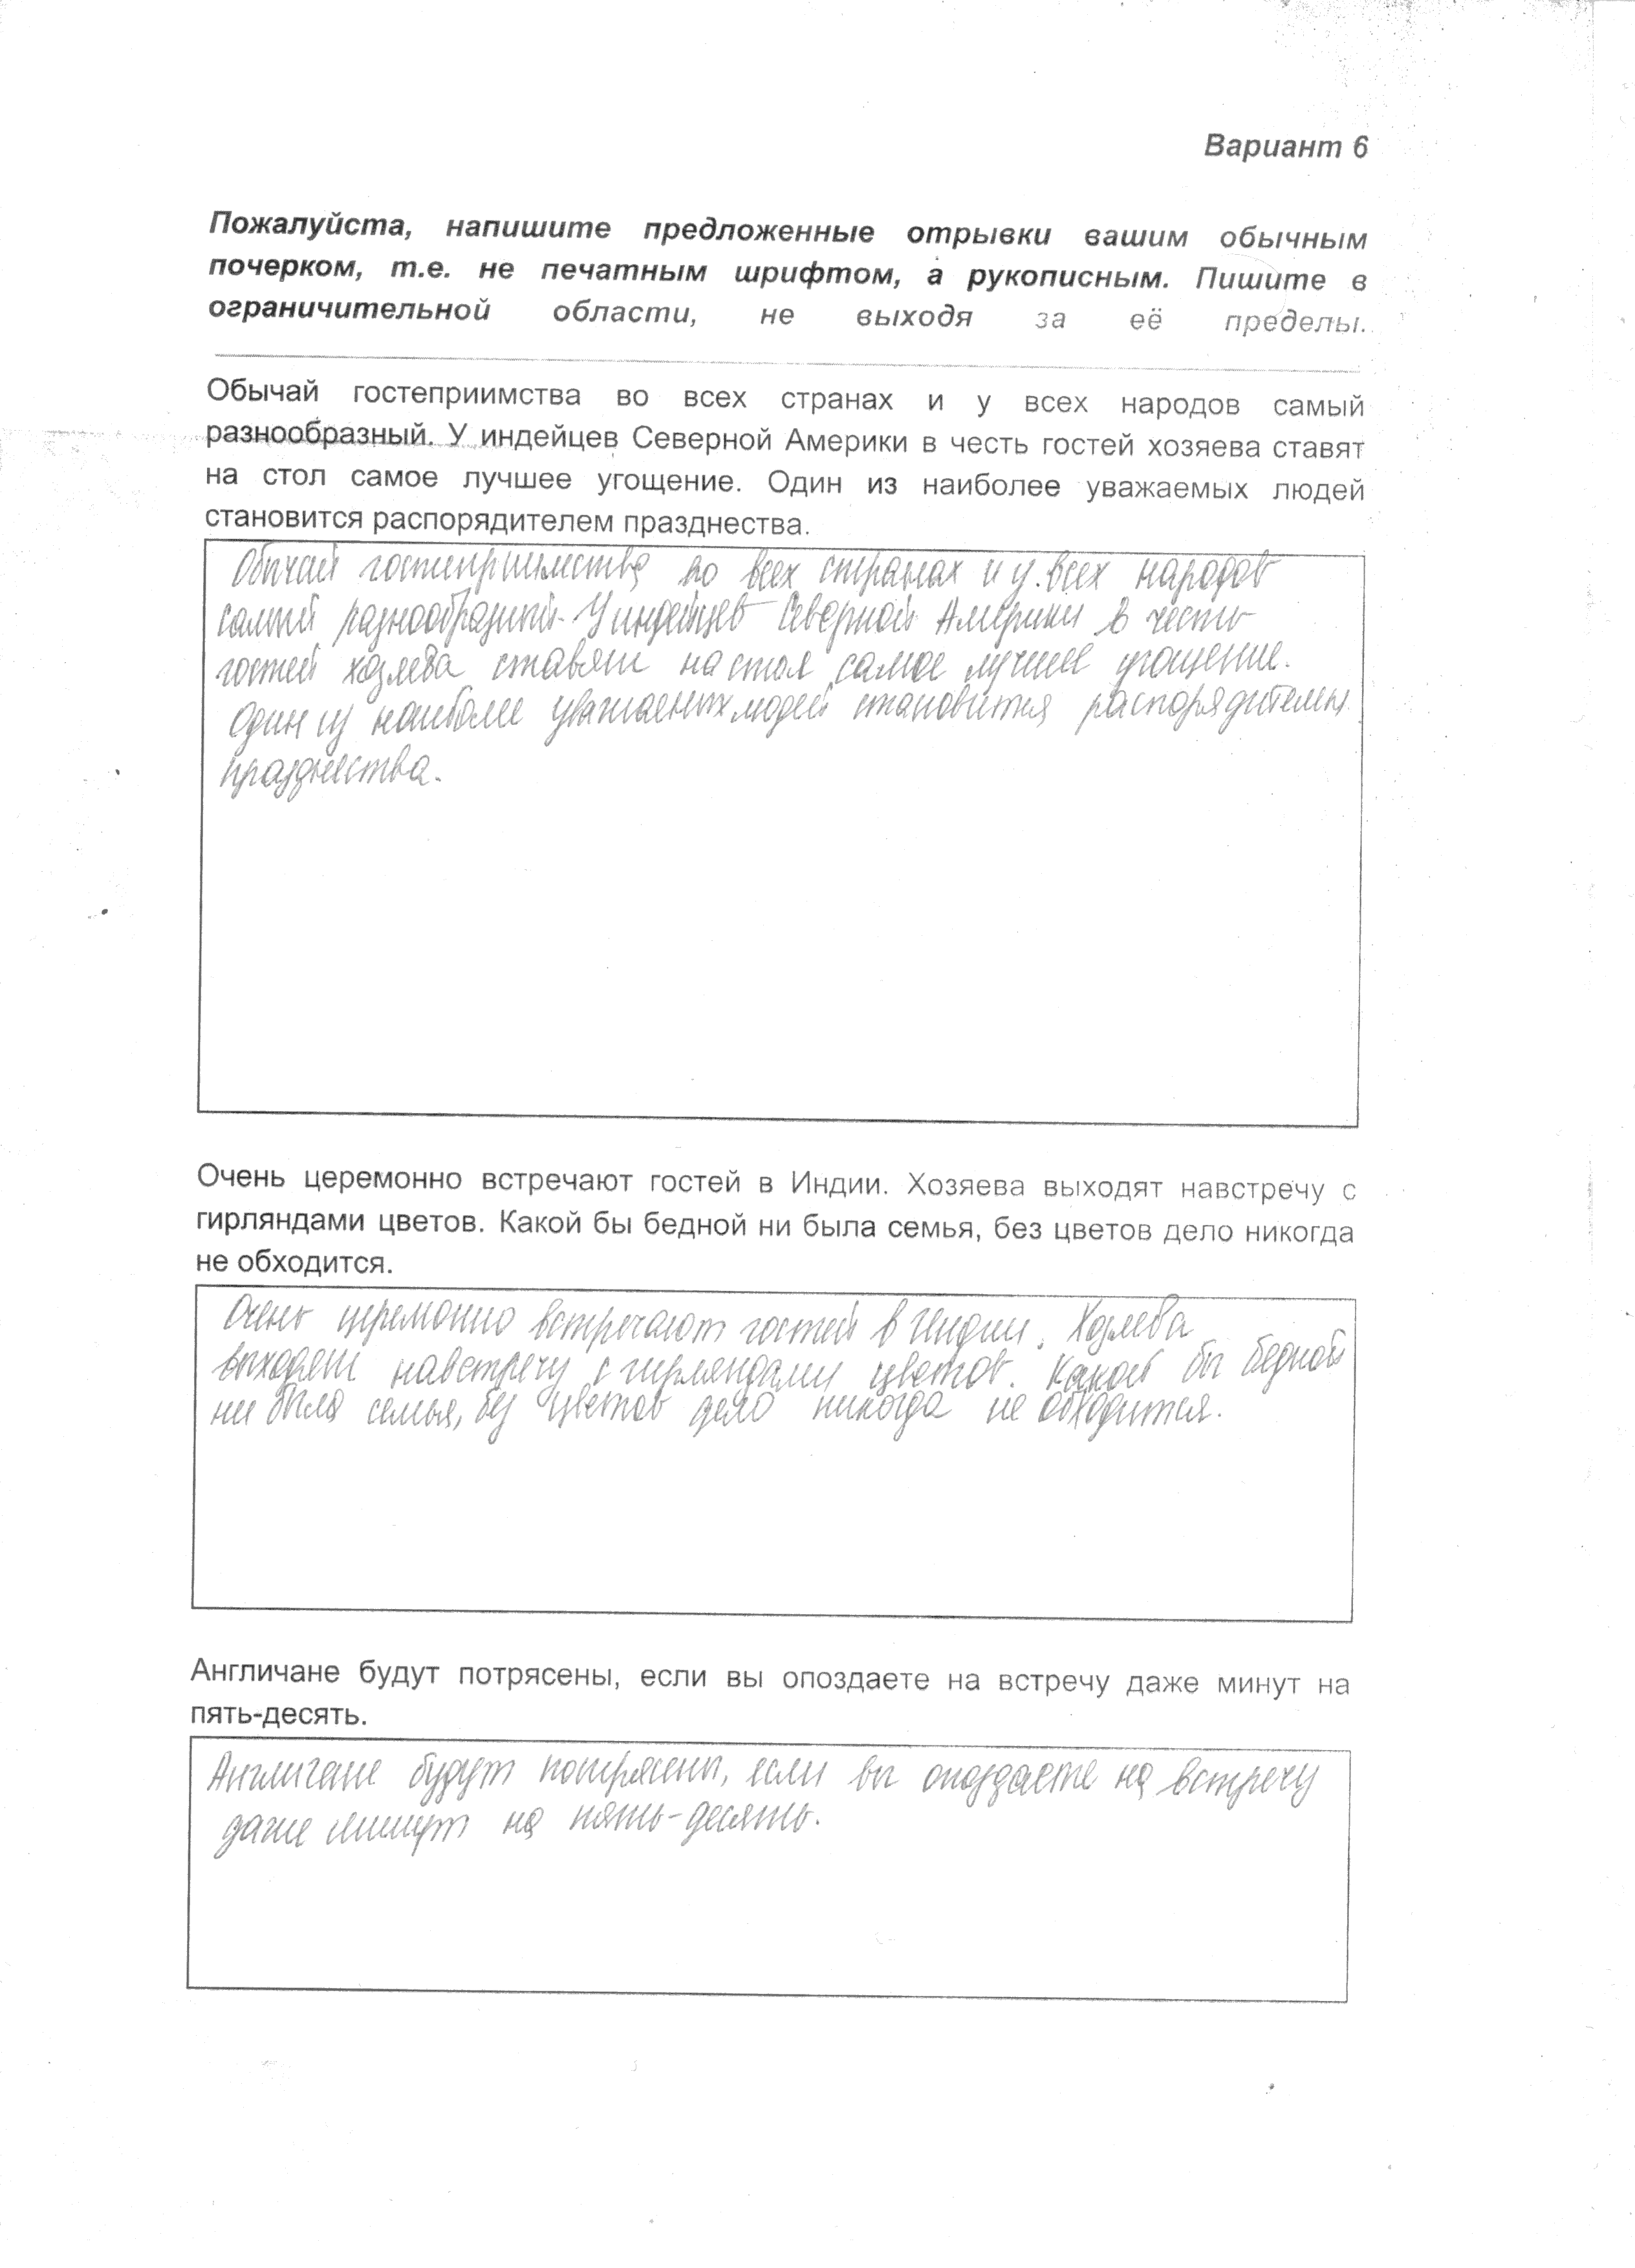 Вариант 6
Пожалуйста, напишите предложенные отрывки вашим обычным
почерком, т.е. не печатным шрифтом, а рукописным. Пишите в
ограничительной области, не выходя за её пределы.
Обычай гостеприимства во всех странах и у всех народов самый
разнообразный. У индейцев Северной Америки в честь гостей хозяева ставят
на стол самое лучшее угощение. Один из наиболее уважаемых людей
становится распорядителем празднества.
Обычай гостеприимства во всех странах и у всех народов
самый разнообразный. У индейцев Северной Америки в честь
гостей хозяева ставят на стол самое лучшее угощение.
Один из наиболее уважаемых людей становится распорядителем
празднества.
Очень церемонно встречают гостей в Индии. Хозяева выходят навстречу с
гирляндами цветов. Какой бы бедной ни была семья, без цветов дело никогда
не обходится.
Очень церемонно встречают гостей в Индии. Хозяева
выходят навстречу с гирляндами цветов. Какой бы бедной
ни была семья, без цветов дело никогда не обходится.
Англичане будут потрясены, если вы опоздаете на встречу даже минут на
пять-десять.
Англичане будут потрясены, если вы опоздаете на встречу
даже минут на пять-десять.